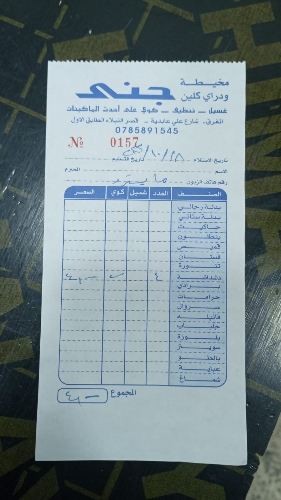 مخيطة
ودراي كلين
جنى
غسيل - تنظيف - كوي على أحدث الماكينات
المفرق، شارع علي عابدية - قصر النبلاء الطابق الاول
0785891545
№ 0157
تاريخ الاستلام تاريخ التسليم
الاسم المحترم
رقم هاتف الزبون
الصنف العدد غسيل كوي السعر
بدلة رجالي
بدلة ستاتي
جاكيت
بنطلون
قميص
فستان
تنورة
دشداشة ٤
برادي
حرامات
سروال
فانيلة
جلباب
بلوزة
سويتر
بالطو
عباية
شماغ
المجموع